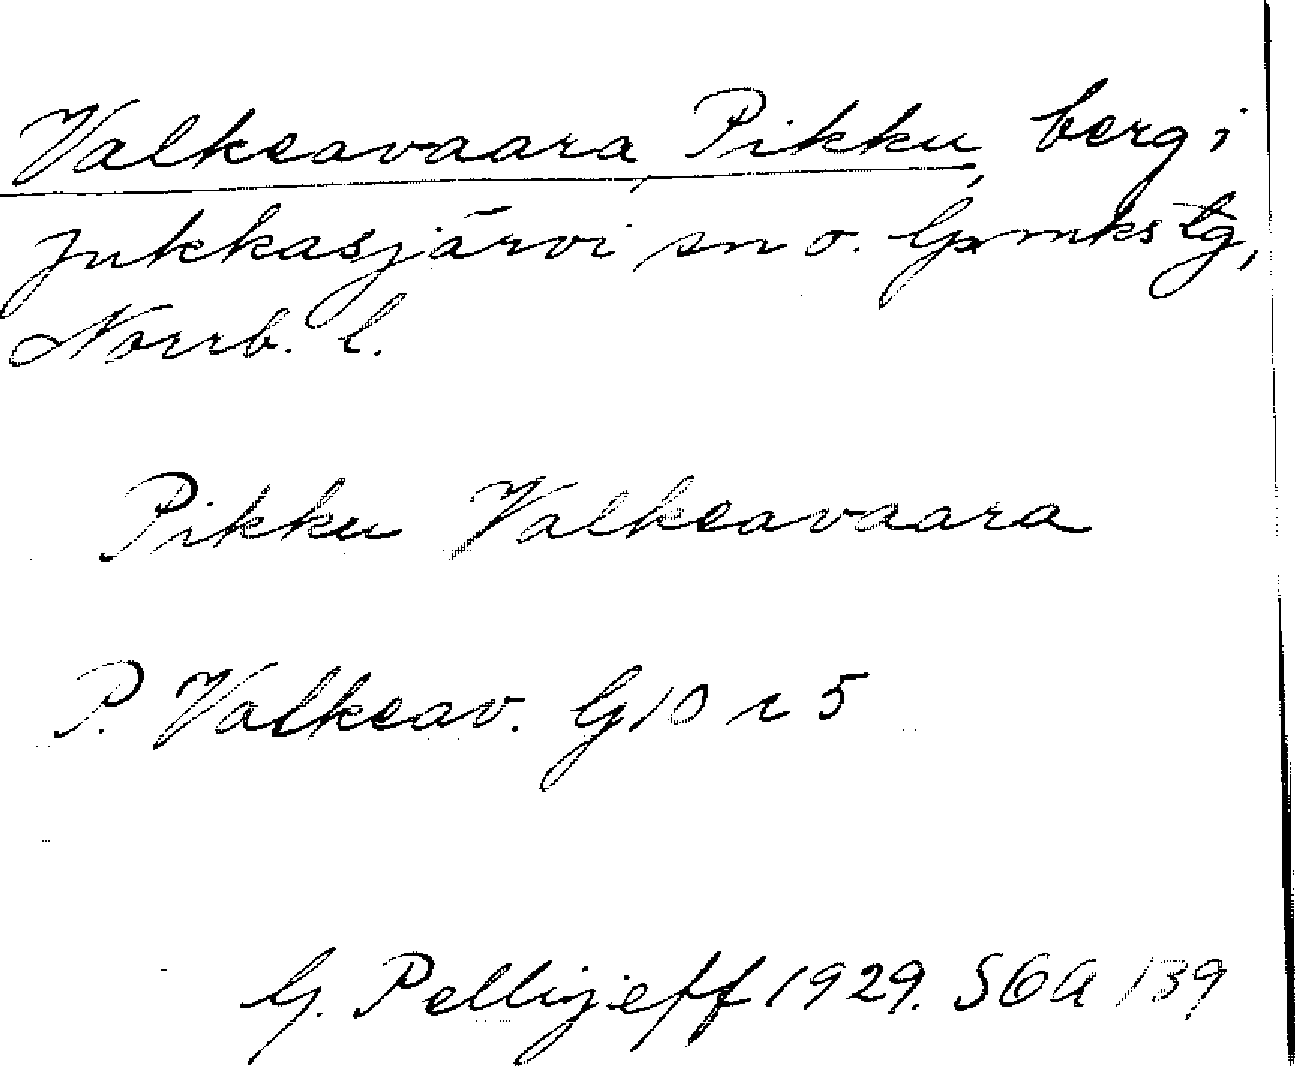 Valkeavaara, Pikku, berg i
Jukkasjärvi sn o. lpmkstg,
Norrb. l.
Pikku Valkeavaara
P. Valkeav. G10 r 5
G. Pellijeff 1929. SOA 139